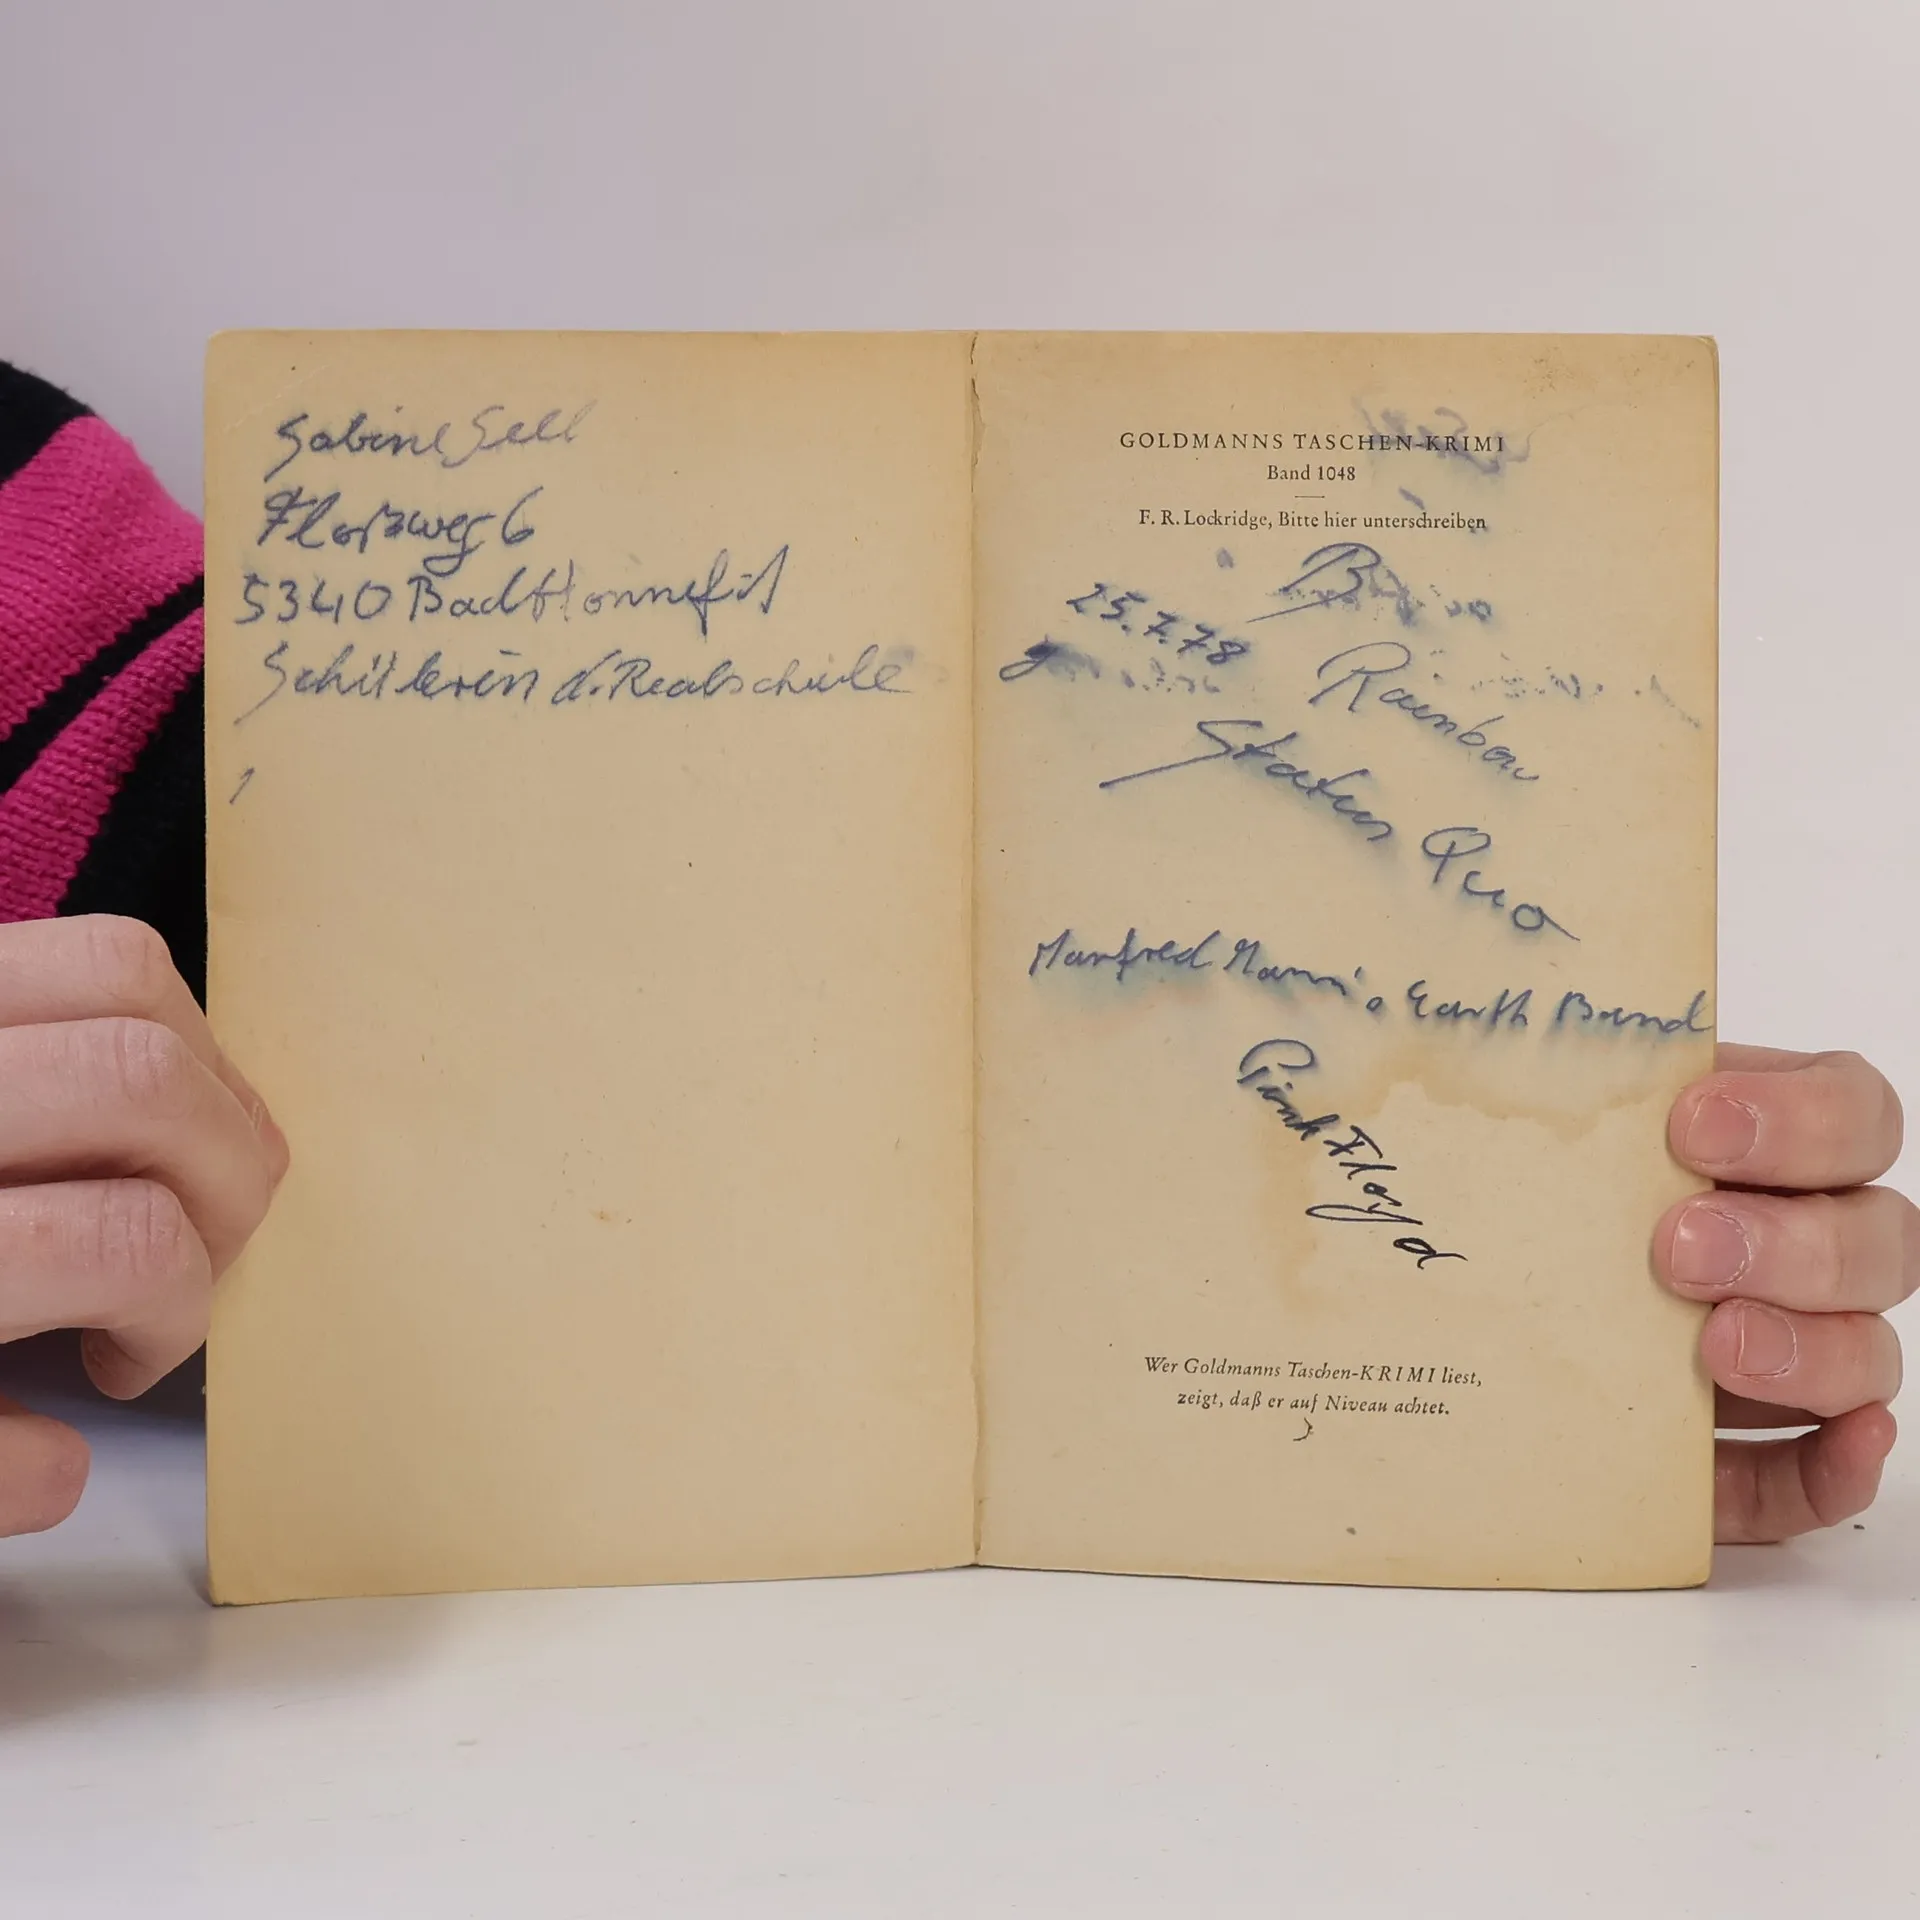 Sabine Sell
Floßweg 6
5340 Bad Honnef 1
Schülerin d. Realschule
GOLDMANNS TASCHEN-KRIMI
Band 1048
F. R. Lockridge, Bitte hier unterschreiben
25.7.78
Rainbow
Status Quo
Manfred Mann's Earth Band
Pink Floyd
Wer Goldmanns Taschen-KRIMI liest,
zeigt, daß er auf Niveau achtet.